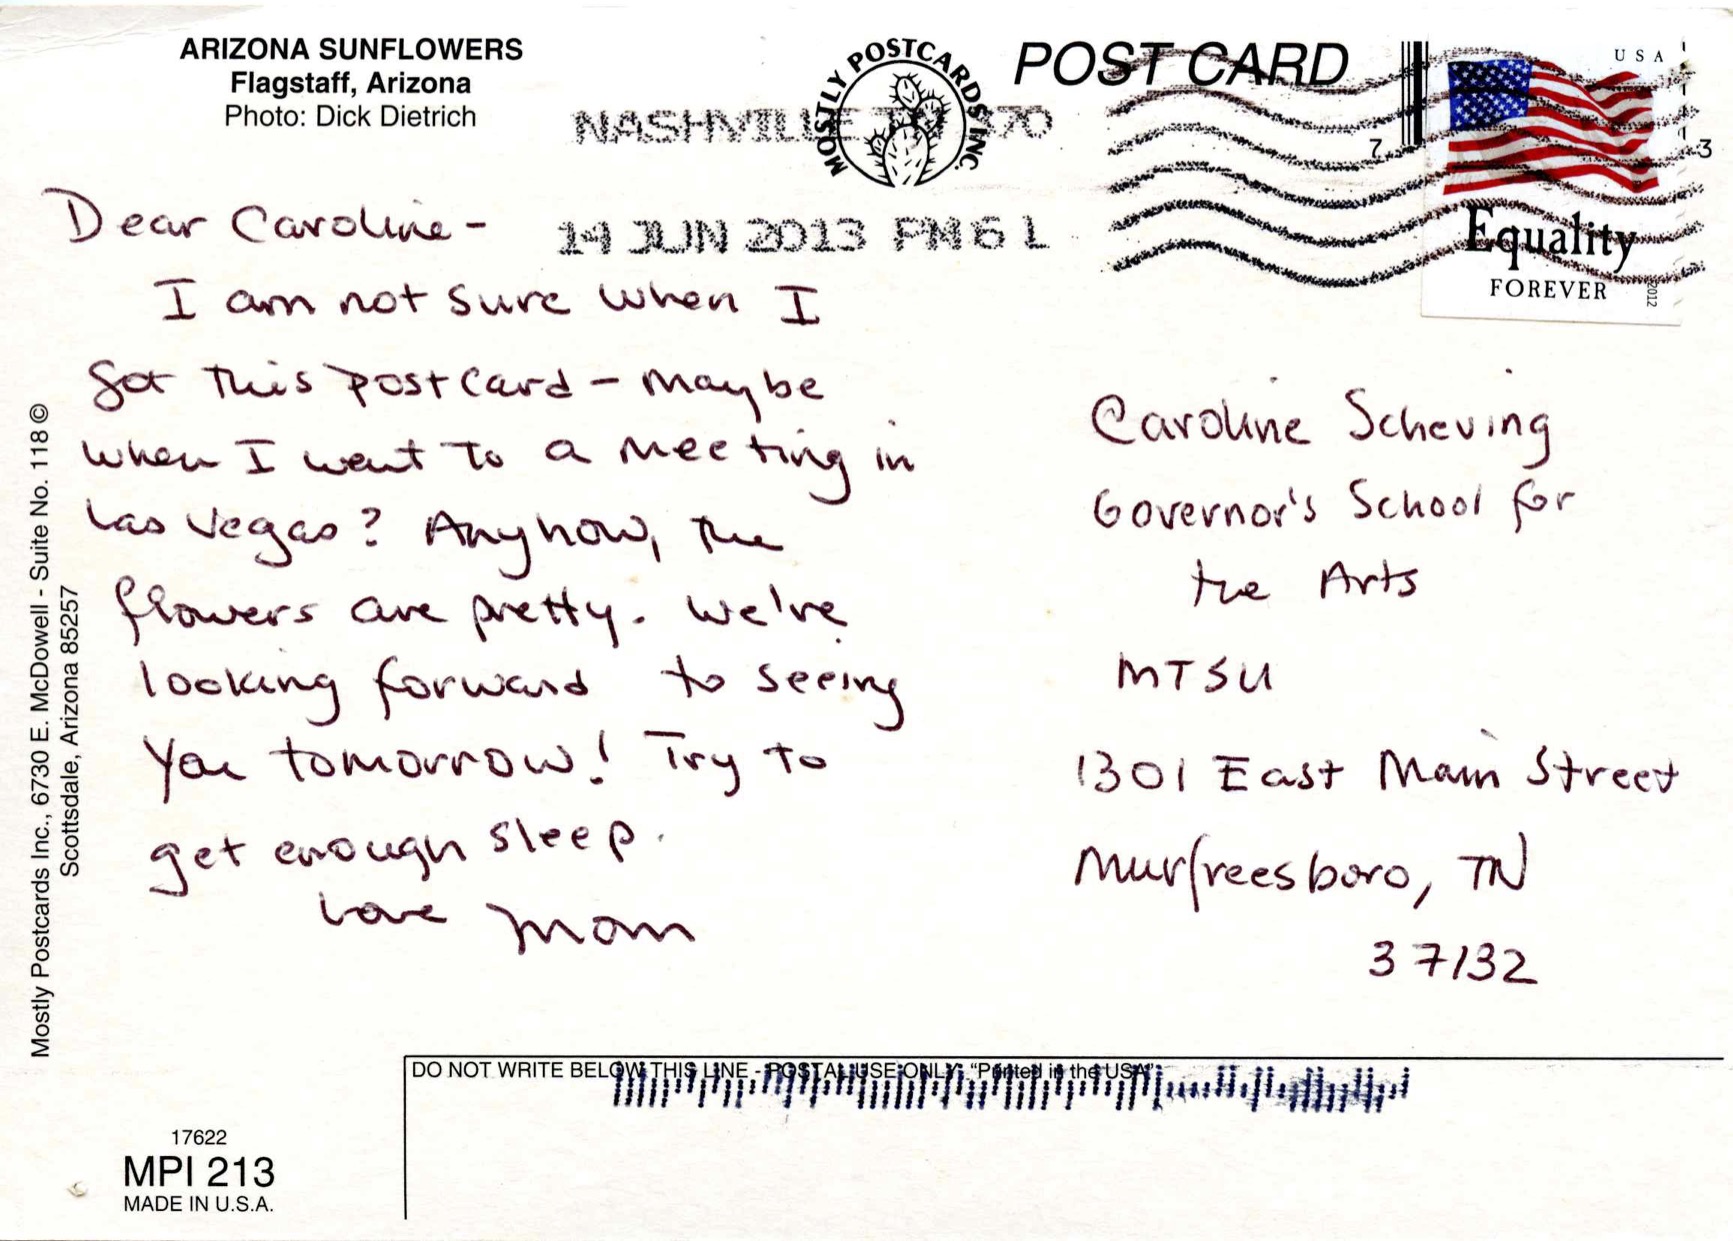 ARIZONA SUNFLOWERS
Flagstaff, Arizona
Photo: Dick Dietrich
MOSTLY POSTCARDS INC.
POST CARD
USA
Equality
FOREVER
2012
NASHVILLE TN 370
14 JUN 2013 PM 6 L
7
3
Dear Caroline-
I am not sure when I
got this postcard - maybe
when I went to a meeting in
Las Vegas? Anyhow, the
flowers are pretty. We're
looking forward to seeing
you tomorrow! Try to
get enough sleep.
Love Mom
Caroline Scheving
Governor's School for
the Arts
MTSU
1301 East Main Street
Murfreesboro, TN
37132
Mostly Postcards Inc., 6730 E. McDowell - Suite No. 118 ©
Scottsdale, Arizona 85257
DO NOT WRITE BELOW THIS LINE - POSTAL USE ONLY. "Printed in the USA"
17622
MPI 213
MADE IN U.S.A.